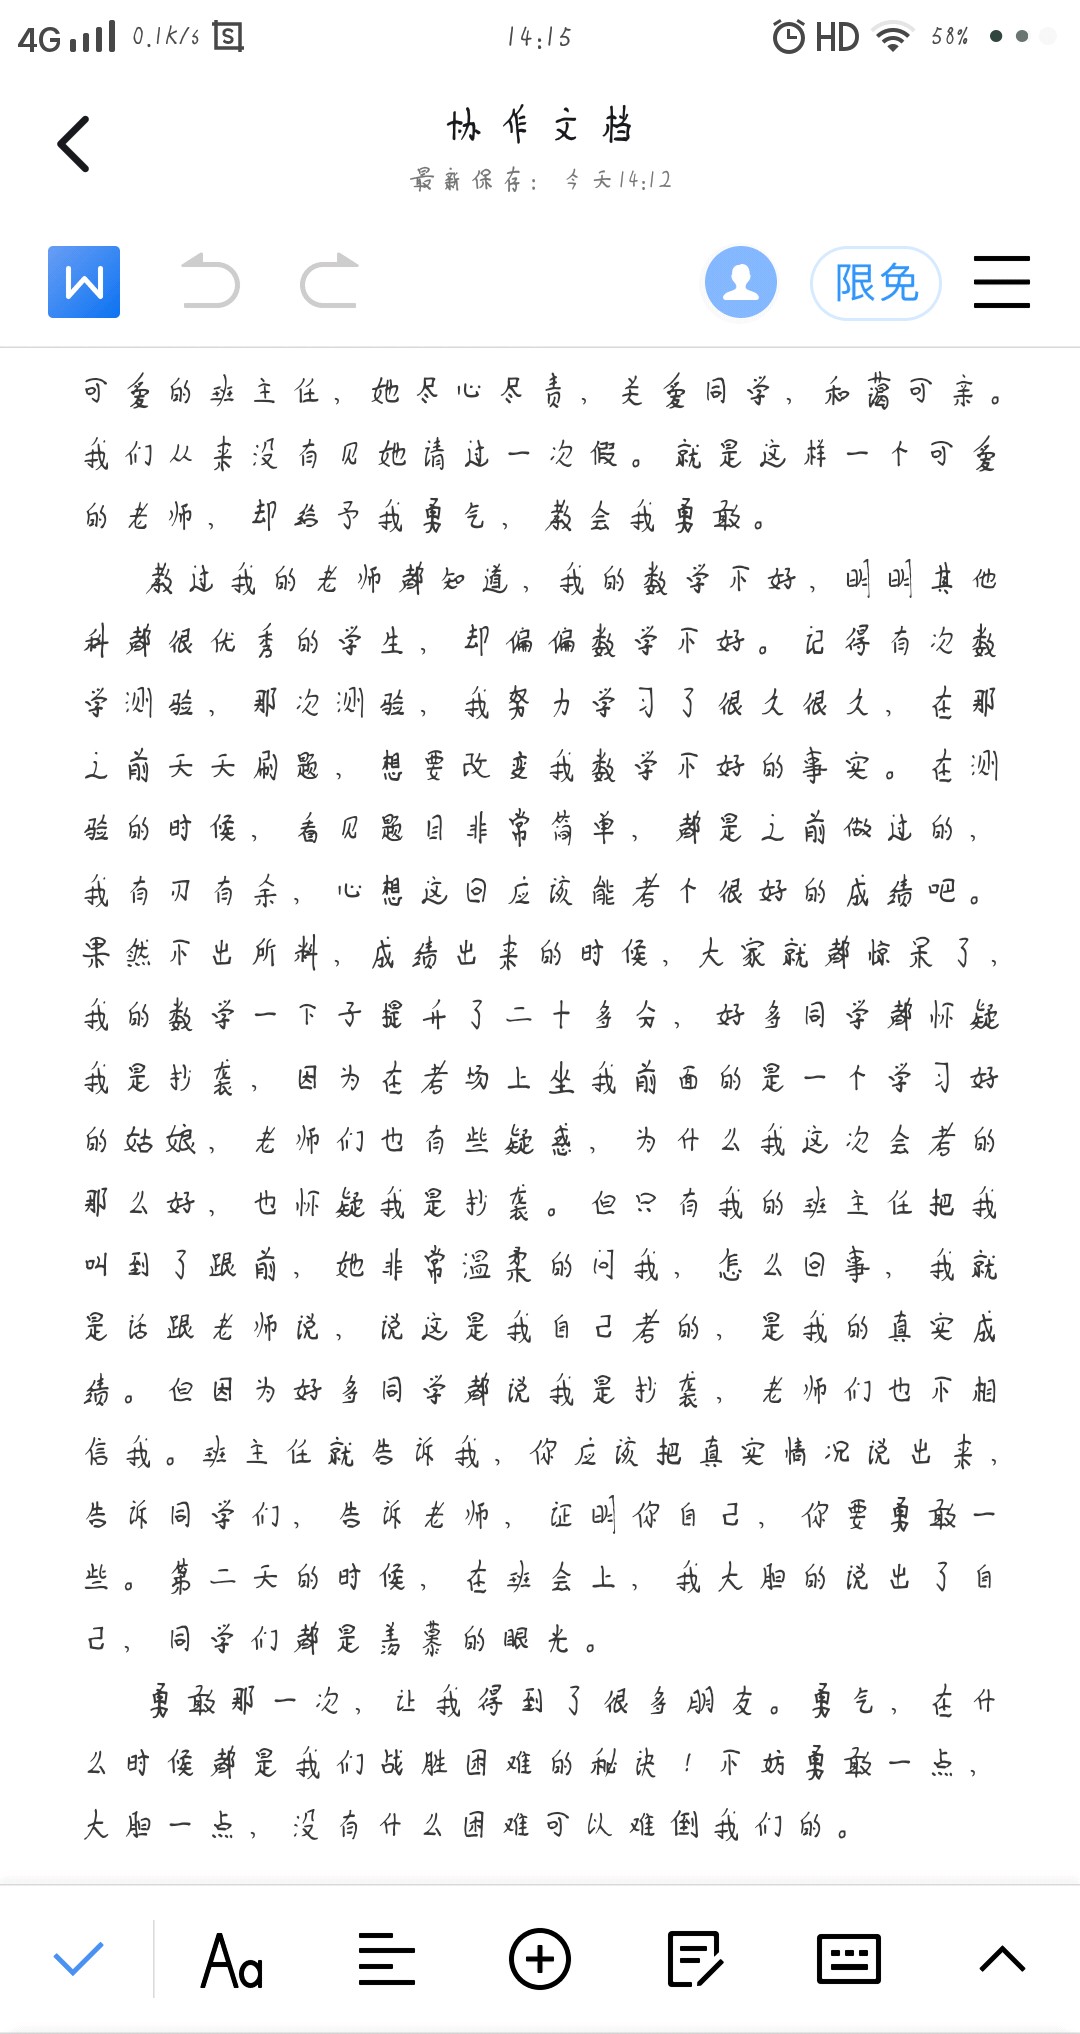 4G 0.1k/s 14:15 HD 58%
协作文档
最新保存: 今天14:12
限免
可爱的班主任，她尽心尽责，关爱同学，和蔼可亲。
我们从来没有见她请过一次假。就是这样一个可爱
的老师，却给予我勇气，教会我勇敢。
教过我的老师都知道，我的数学不好，明明其他
科都很优秀的学生，却偏偏数学不好。记得有次数
学测验，那次测验，我努力学习了很久很久，在那
之前天天刷题，想要改变我数学不好的事实。在测
验的时候，看见题目非常简单，都是之前做过的，
我有刃有余，心想这回应该能考个很好的成绩吧。
果然不出所料，成绩出来的时候，大家就都惊呆了，
我的数学一下子提升了二十多分，好多同学都怀疑
我是抄袭，因为在考场上坐我前面的是一个学习好
的姑娘，老师们也有些疑惑，为什么我这次会考的
那么好，也怀疑我是抄袭。但只有我的班主任把我
叫到了跟前，她非常温柔的问我，怎么回事，我就
是话跟老师说，说这是我自己考的，是我的真实成
绩。但因为好多同学都说我是抄袭，老师们也不相
信我。班主任就告诉我，你应该把真实情况说出来，
告诉同学们，告诉老师，证明你自己，你要勇敢一
些。第二天的时候，在班会上，我大胆的说出了自
己，同学们都是羡慕的眼光。
勇敢那一次，让我得到了很多朋友。勇气，在什
么时候都是我们战胜困难的秘诀！不妨勇敢一点，
大胆一点，没有什么困难可以难倒我们的。
Aa